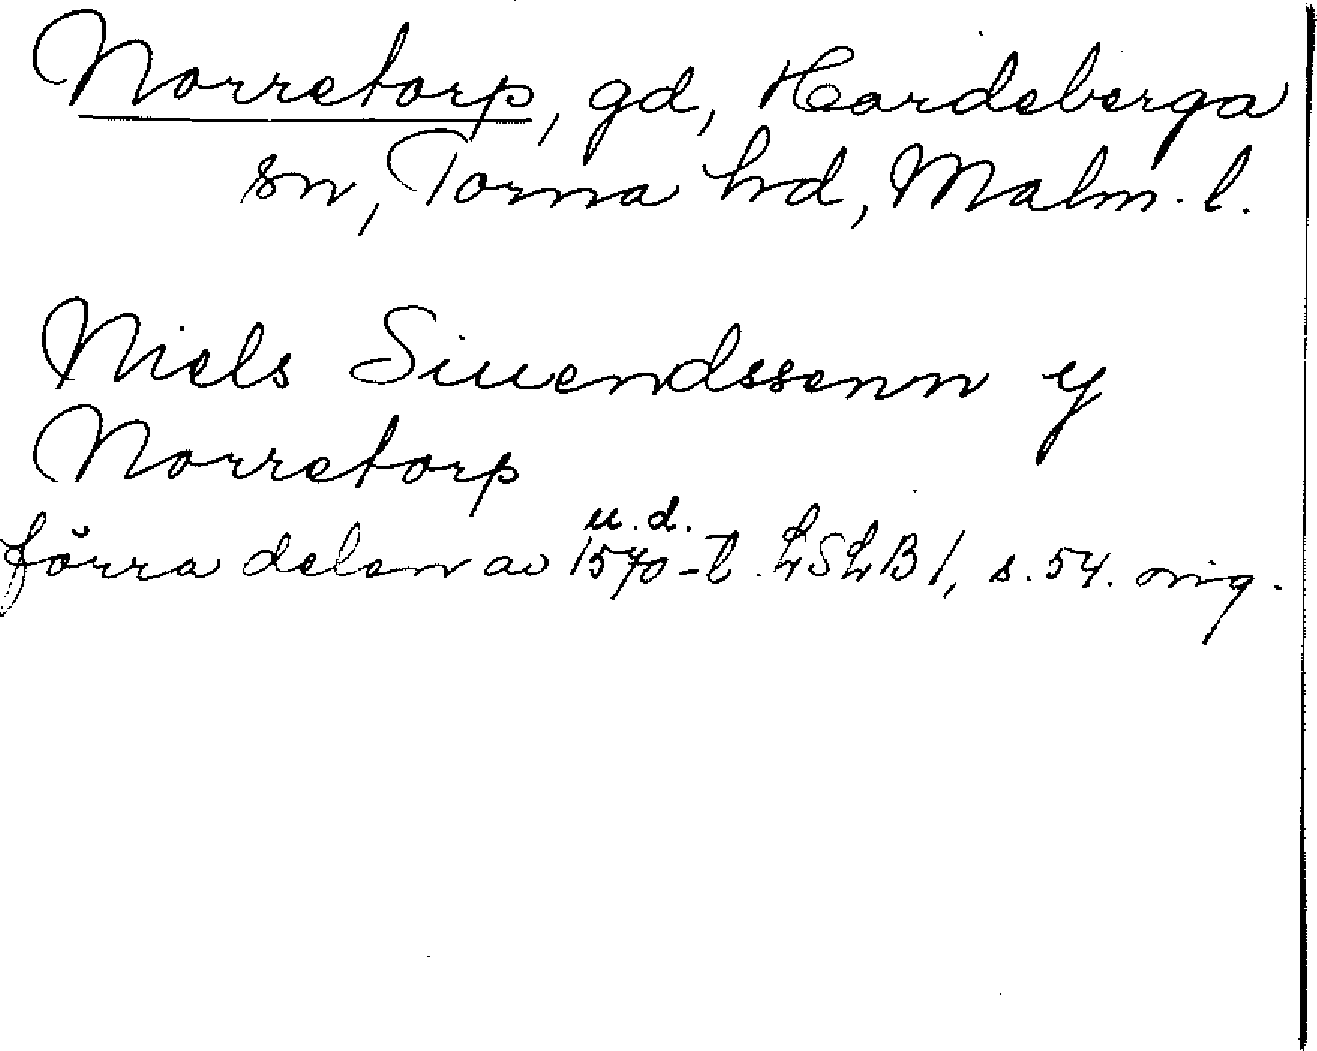 Norretorp, gd, Hardeberga
sn, Torna hd, Malm. l.
Niels Siuendssenn y
Norretorp
u. d.
förra delen av 1570-t. LSLB 1, s. 54. orig.